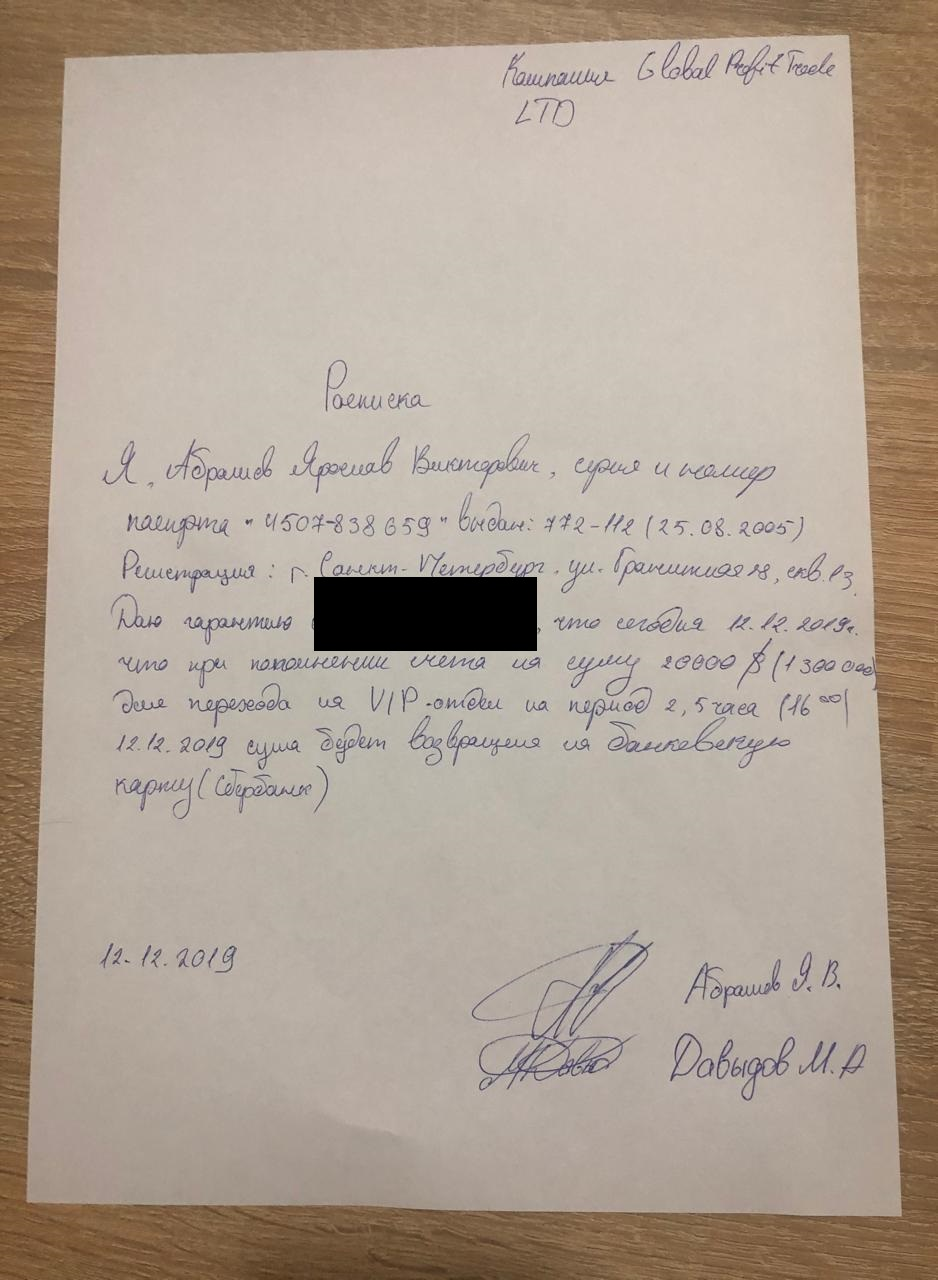 Компания Global Profit Trade
LTD
Расписка
Я, Абрамов Ярослав Викторович, серия и номер
паспорта "4507-838659" выдан: 772-112 (25.08.2005)
Регистрация: г. Санкт-Петербург, ул. Гранитная, скв. 13,
Даю гарантию, что сегодня 12.12.2019г.
что при пополнении счета на сумму 20000 $ (1300000)
для перехода на VIP-отдел на период 2,5 часа (16 00)
12.12.2019 сумма будет возвращена на банковскую
карту (Сбербанк)
12.12.2019
Абрамов Я.В.
Давыдов М.А